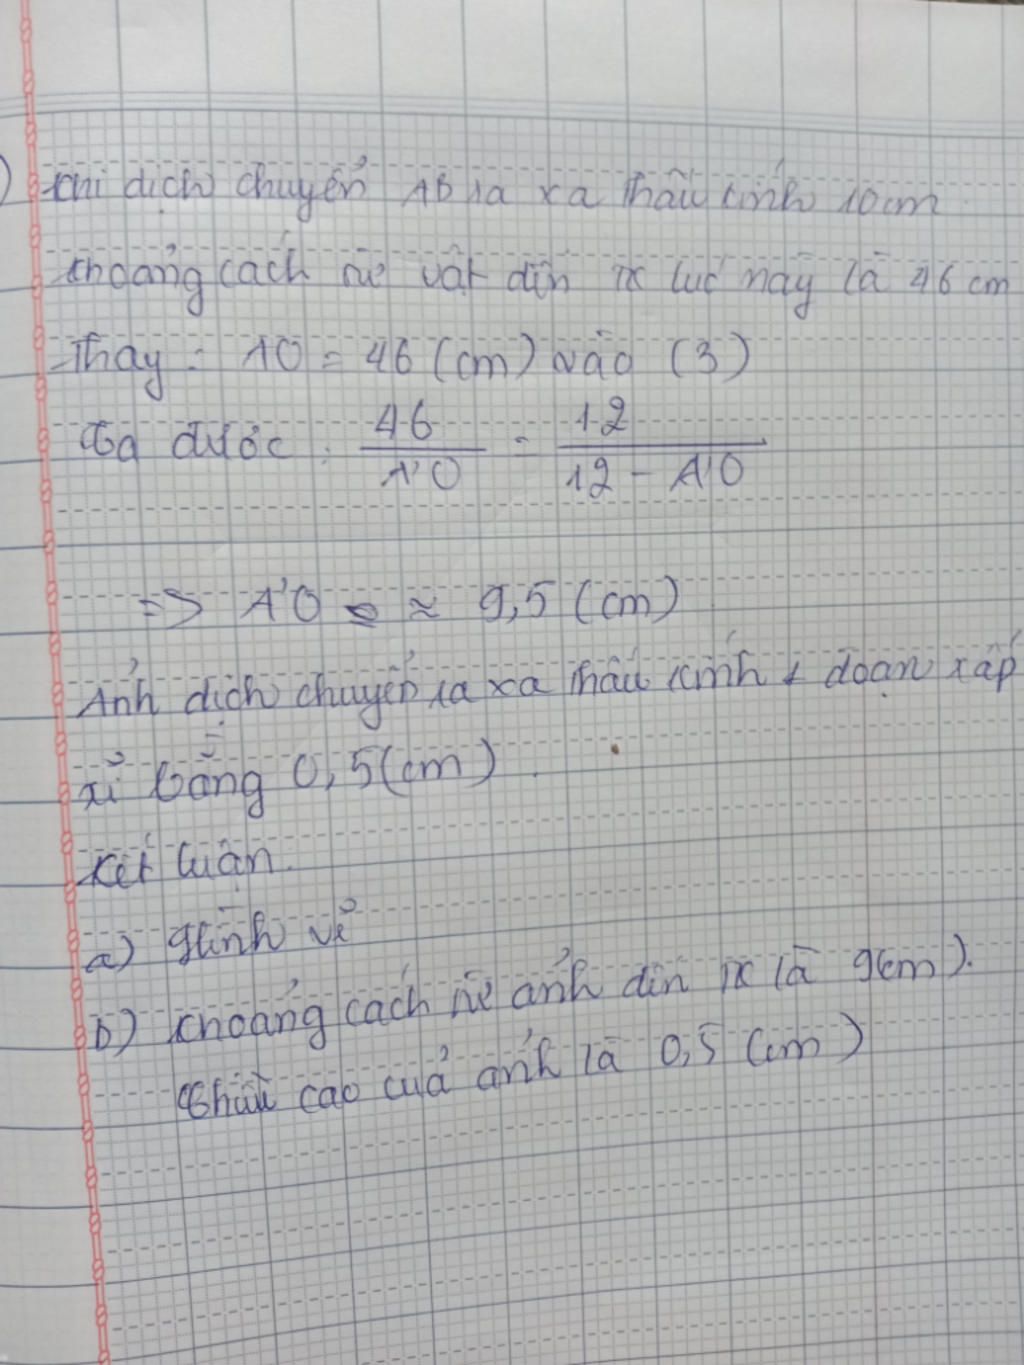 ) Khi dịch chuyển AB ra xa thấu kính 10cm
khoảng cách từ vật đến TK lúc này là 46 cm
Thay : AO = 46 (cm) vào (3)
Ta được : 46/A'O = 12/(12 - A'O)
=> A'O ≈ 9,5 (cm)
Ảnh dịch chuyển ra xa thấu kính 1 đoạn xấp
xỉ bằng 0,5 (cm).
Kết luận.
a) Hình vẽ
b) Khoảng cách từ ảnh đến TK là 9(cm).
Chiều cao của ảnh là 0,5 (cm)